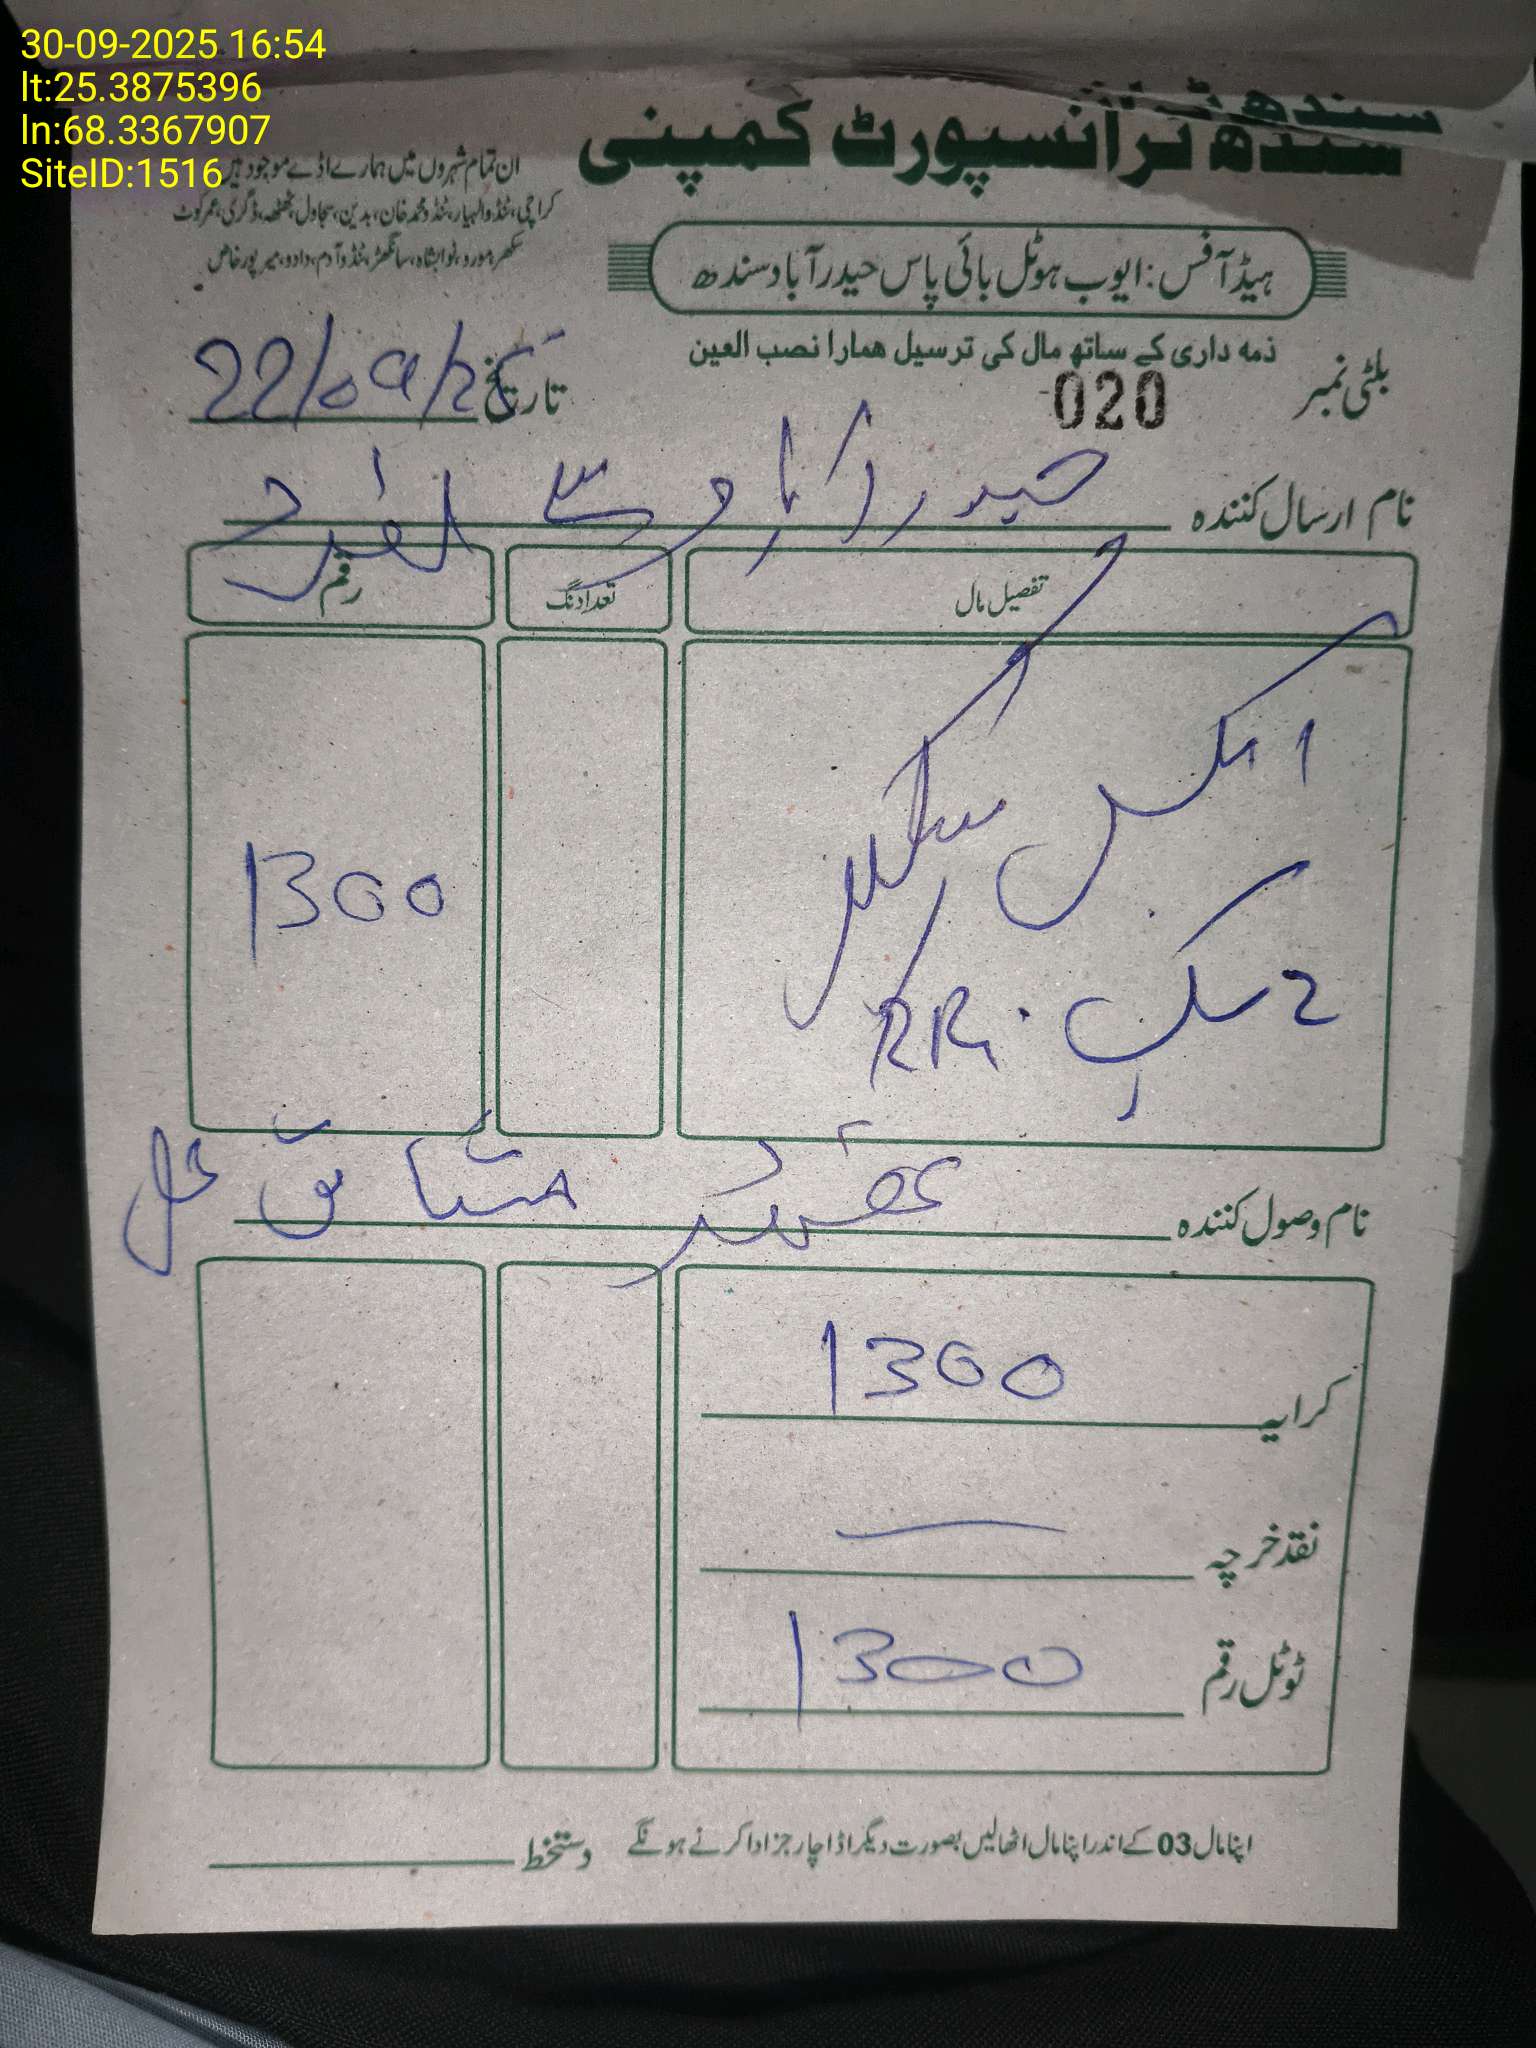 30-09-2025 16:54
lt:25.3875396
ln:68.3367907
SiteID:1516
سندھ ٹرانسپورٹ کمپنی
ان تمام شہروں میں ہمارے اڈے موجود ہیں
کراچی، ٹنڈوالہیار، ٹنڈو محمد خان، بدین، سجاول، ٹھٹھہ، ڈگری، عمرکوٹ
سکھر، مورو، نوابشاہ، سانگھڑ، ٹنڈو آدم، دادو، میرپورخاص
ہیڈ آفس: ایوب ہوٹل بائی پاس حیدرآباد سندھ
ذمہ داری کے ساتھ مال کی ترسیل ہمارا نصب العین
بلٹی نمبر 020
تاریخ 22/09/25
نام ارسال کنندہ حیدرآباد سے
تفصیل مال تعداد نگ رقم
1300
RR
نام وصول کنندہ مشتاق
کرایہ 1300
نقد خرچہ
ٹوٹل رقم 1300
اپنا مال 03 کے اندر اپنا مال اٹھالیں بصورت دیگر اڈا چارجز ادا کرنے ہونگے
دستخط